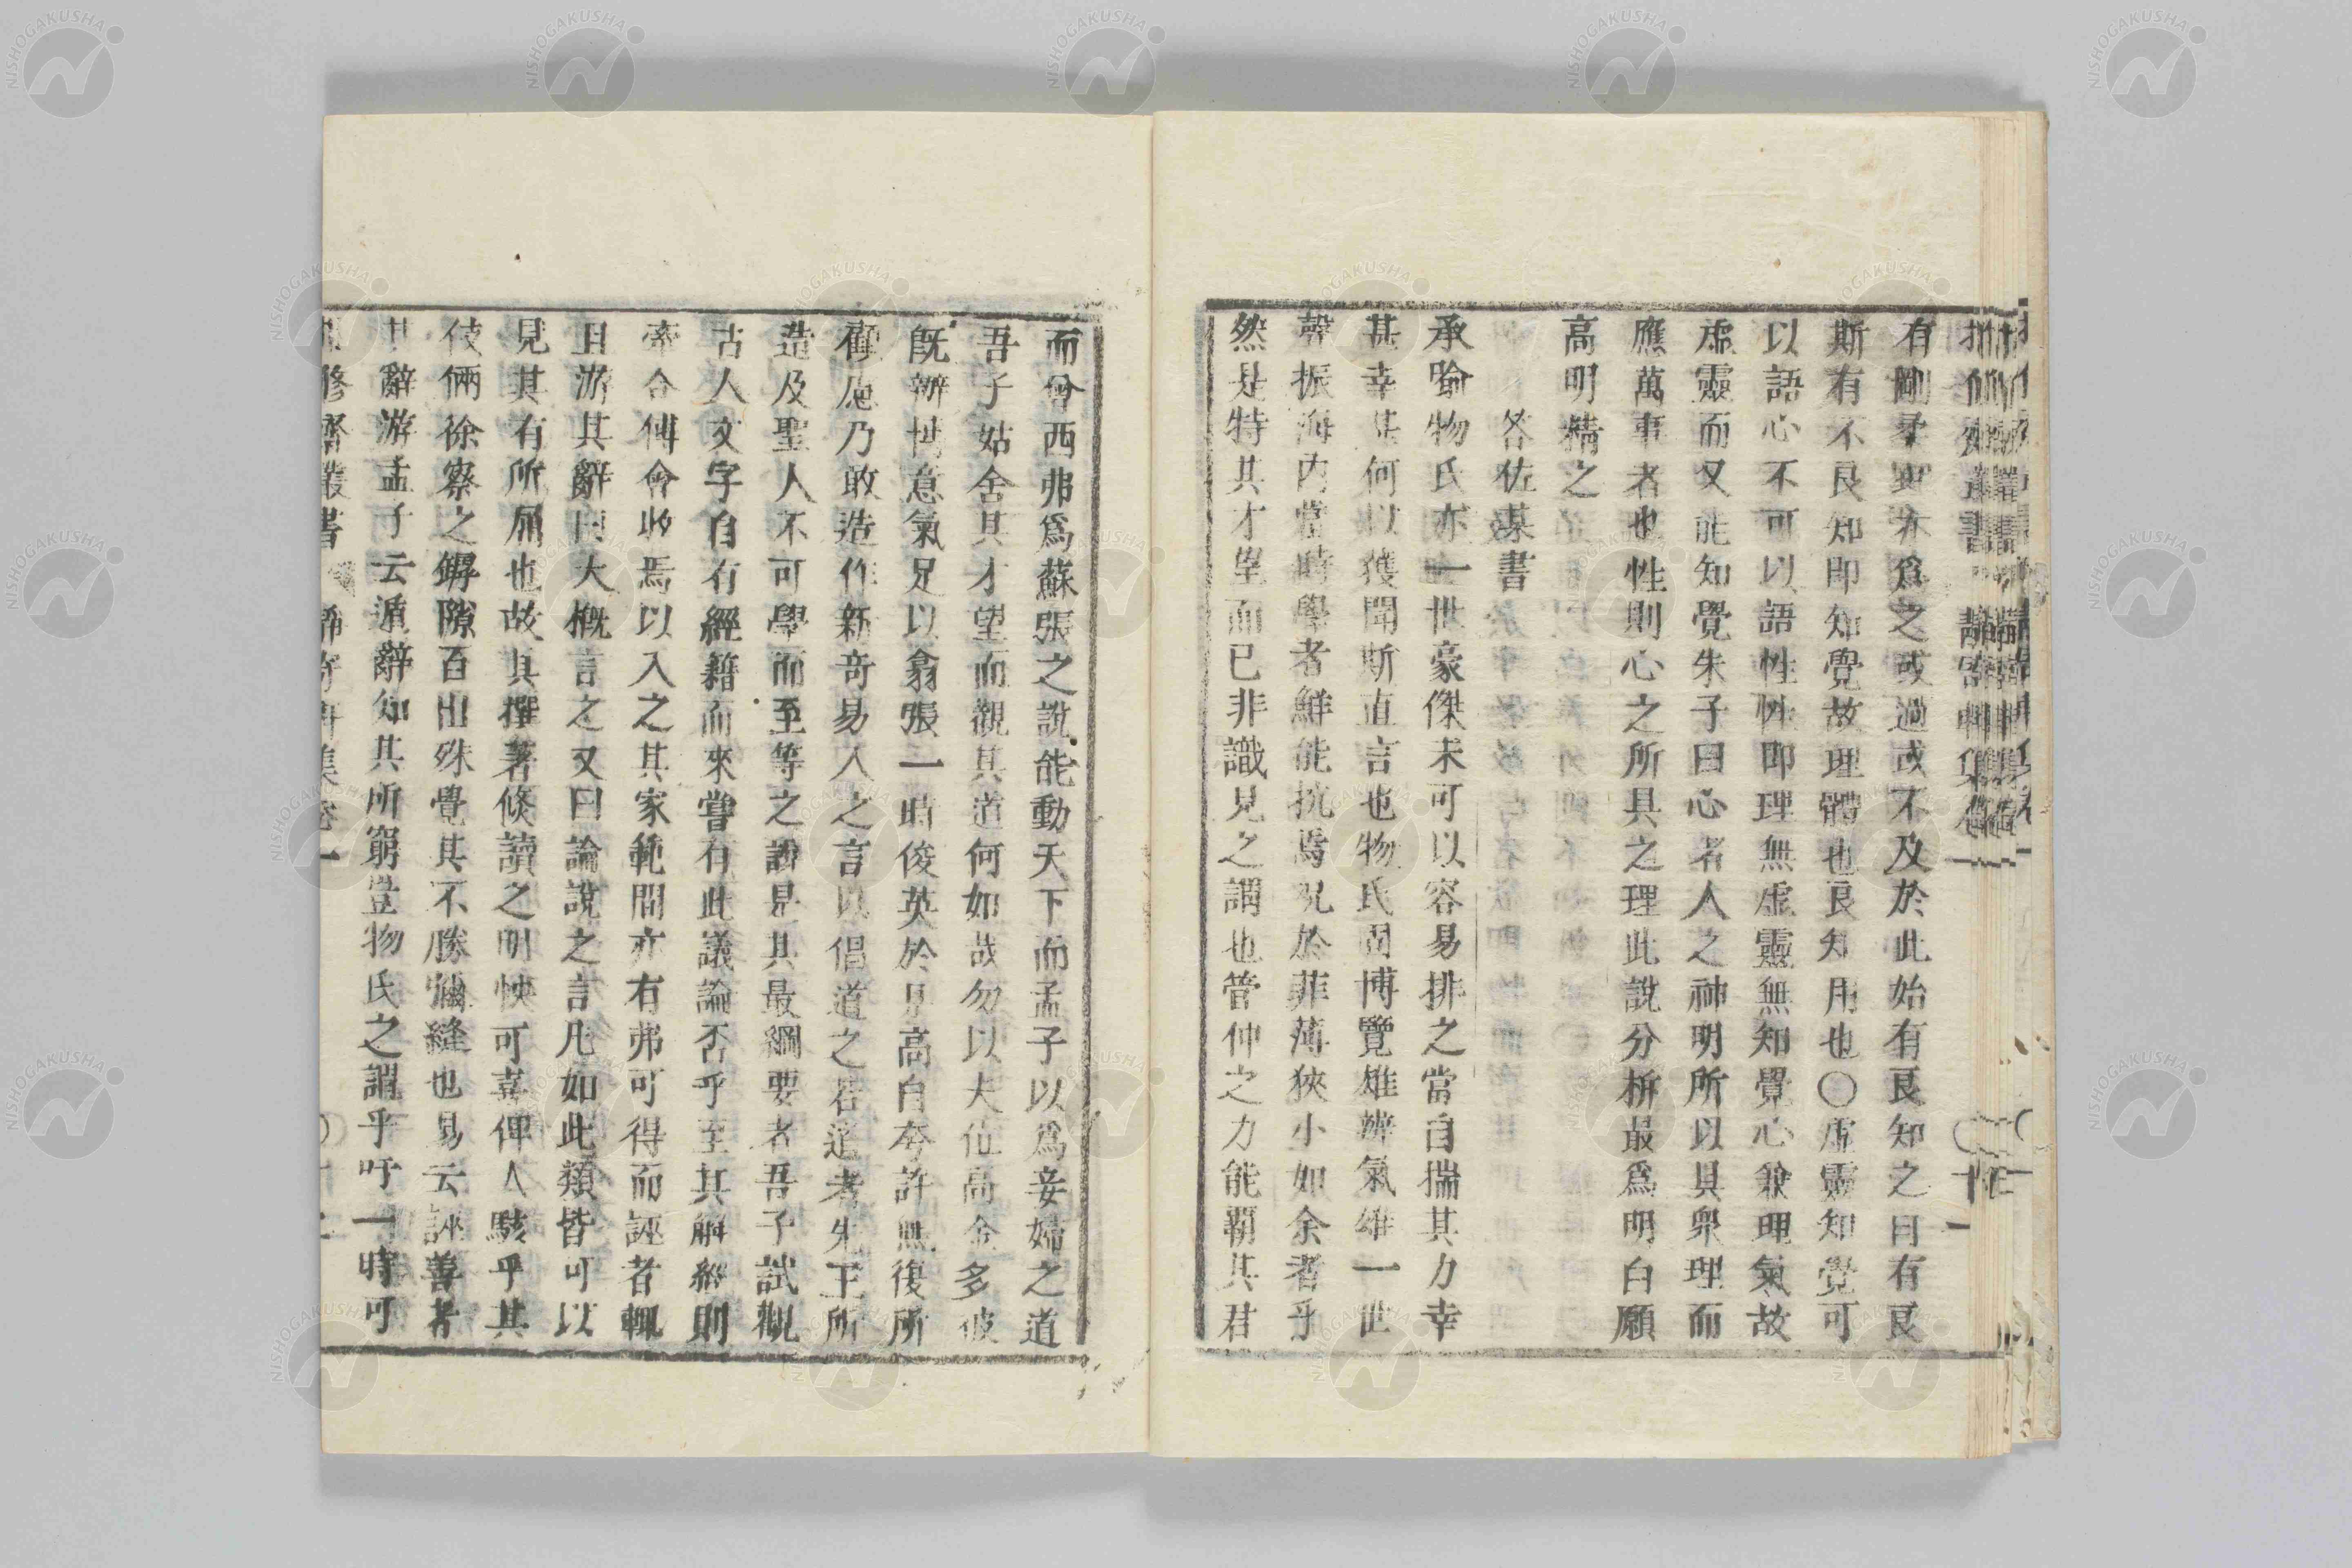 有剛柔與亦爲之或過或不及於此始有良知之曰有良
斯有不良知即知覺故理體也良知用也〇虛靈知覺可
以語心不可以語性性即理無虛靈無知覺心兼理氣故
虛靈而又能知覺朱子曰心者人之神明所以具衆理而
應萬事者也性則心之所具之理此說分柝最爲明白願
高明精之
答佐某書
承喩物氏亦一世豪傑未可以容易排之當自揣其力幸
甚幸甚何以獲聞斯直言也物氏固博覽雄辨氣雄一世
聲振海内當時學者鮮能抗焉况於菲薄狹小如余者乎
然是特其才望而已非識見之謂也管仲之力能覇其君
而會西弗爲蘇張之說能動天下而孟子以爲妾婦之道
吾子姑舍其才望而觀其道何如哉勿以夫位高金多彼
既辨博意氣足以翕張一時俊英於是高自夸許無復所
顧慮乃敢造作新奇易入之言以倡道之若道者先王所
造及聖人不可學而至等之說是其最綱要者吾子試觀
古人文字自有經籍而來嘗有此議論否乎至其解經則
牽合傅會收焉以入之其家範間亦有弗可得而誣者輒
且游其辭曰大槪言之又曰論說之言凡如此類皆可以
見其有所屈也故其撰著倏讀之明快可喜俾人駭乎其
伎倆徐察之罅隙百出殊覺其不勝彌縫也易云誣善者
其辭游孟子云遁辭知其所窮豈物氏之謂乎吁一時可
修齋叢書 靜寄軒集 卷一